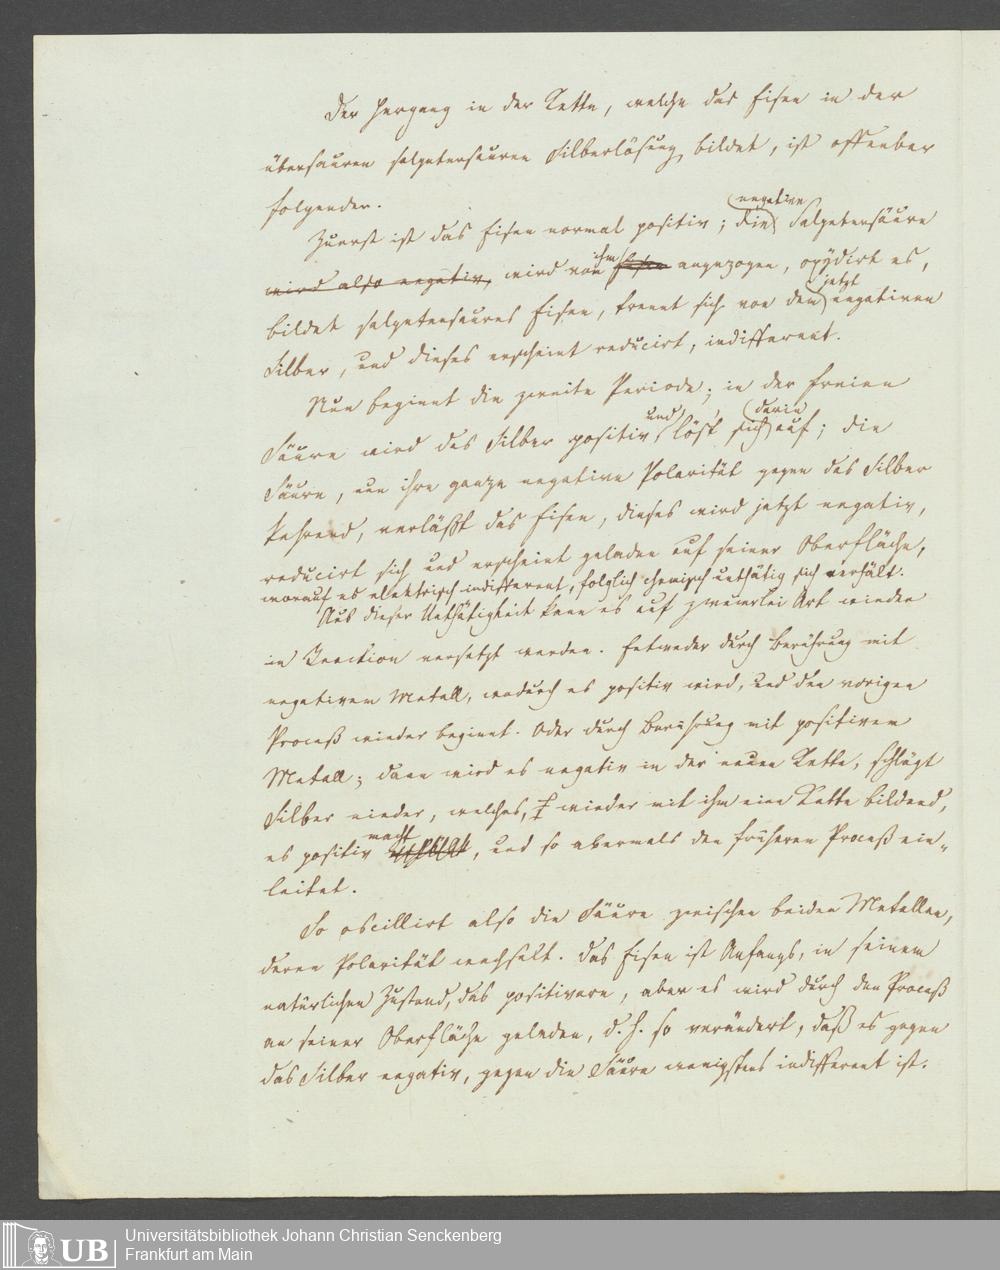 Der Hergang in der Kette, welche das Eisen in der
übersauren salpetersauren Silberlösung bildet, ist offenbar
folgender.
Zuerst ist das Eisen normal positiv; die negative Salpetersäure
wird also negativ, wird von ihm angezogen, oxydirt es,
bildet salpetersaures Eisen, trennt sich von dem jetzt negativen
Silber, und dieses erscheint reducirt, indifferent.
Nun beginnt die zweite Periode; in der freien
Säure wird das Silber positiv und löst sich darin auf; die
Säure, nun ihre ganze negative Polarität gegen das Silber
kehrend, verläßt das Eisen, dieses wird jetzt negativ,
reducirt sich und erscheint geladen auf seiner Oberfläche,
worauf es elektrisch indifferent, folglich chemisch unthätig sich verhält.
Aus dieser Unthätigkeit kann es auf zweierlei Art wieder
in Reaktion versetzt werden. Entweder durch Berührung mit
negativem Metall, wodurch es positiv wird, und den vorigen
Proceß wieder beginnt. Oder durch Berührung mit positivem
Metall; dann wird es negativ in der neuen Kette, schlägt
Silber nieder, welches, wieder mit ihm eine Kette bildend,
es positiv macht, und so abermals den früheren Proceß ein-
leitet.
So oscillirt also die Säure zwischen beiden Metallen,
deren Polarität wechselt. Das Eisen ist Anfangs, in seinem
natürlichen Zustand, das positivere, aber es wird durch den Proceß
an seiner Oberfläche geladen, d. h. so verändert, daß es gegen
das Silber negativ, gegen die Säure wenigstens indifferent ist.
UB
Universitätsbibliothek Johann Christian Senckenberg
Frankfurt am Main